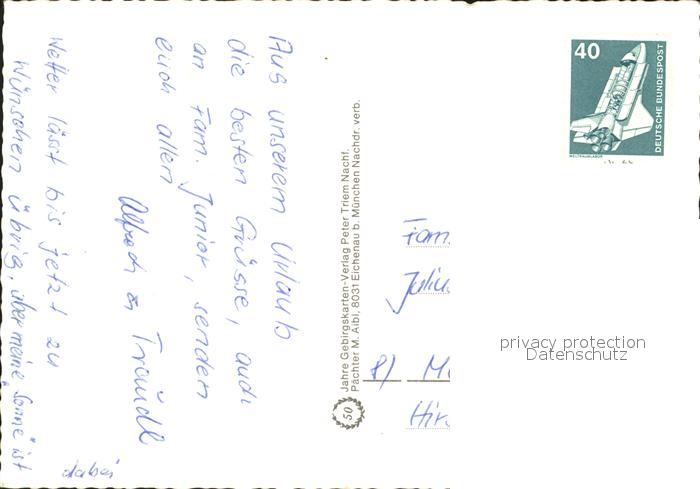 Aus unserem Urlaub
die besten Grüsse, auch
an Fam. Junior, senden
euch allen
Alfred u. Traudl
Wetter lässt bis jetzt zu
wünschen übrig, aber meine „Sonne" ist
dabei
50 Jahre Gebirgskarten-Verlag Peter Triem Nachf.
Pächter M. Aibl, 8031 Eichenau b. München Nachdr. verb.
40
DEUTSCHE BUNDESPOST
WELTRAUMLABOR
Fam.
8) M
privacy protection
Datenschutz